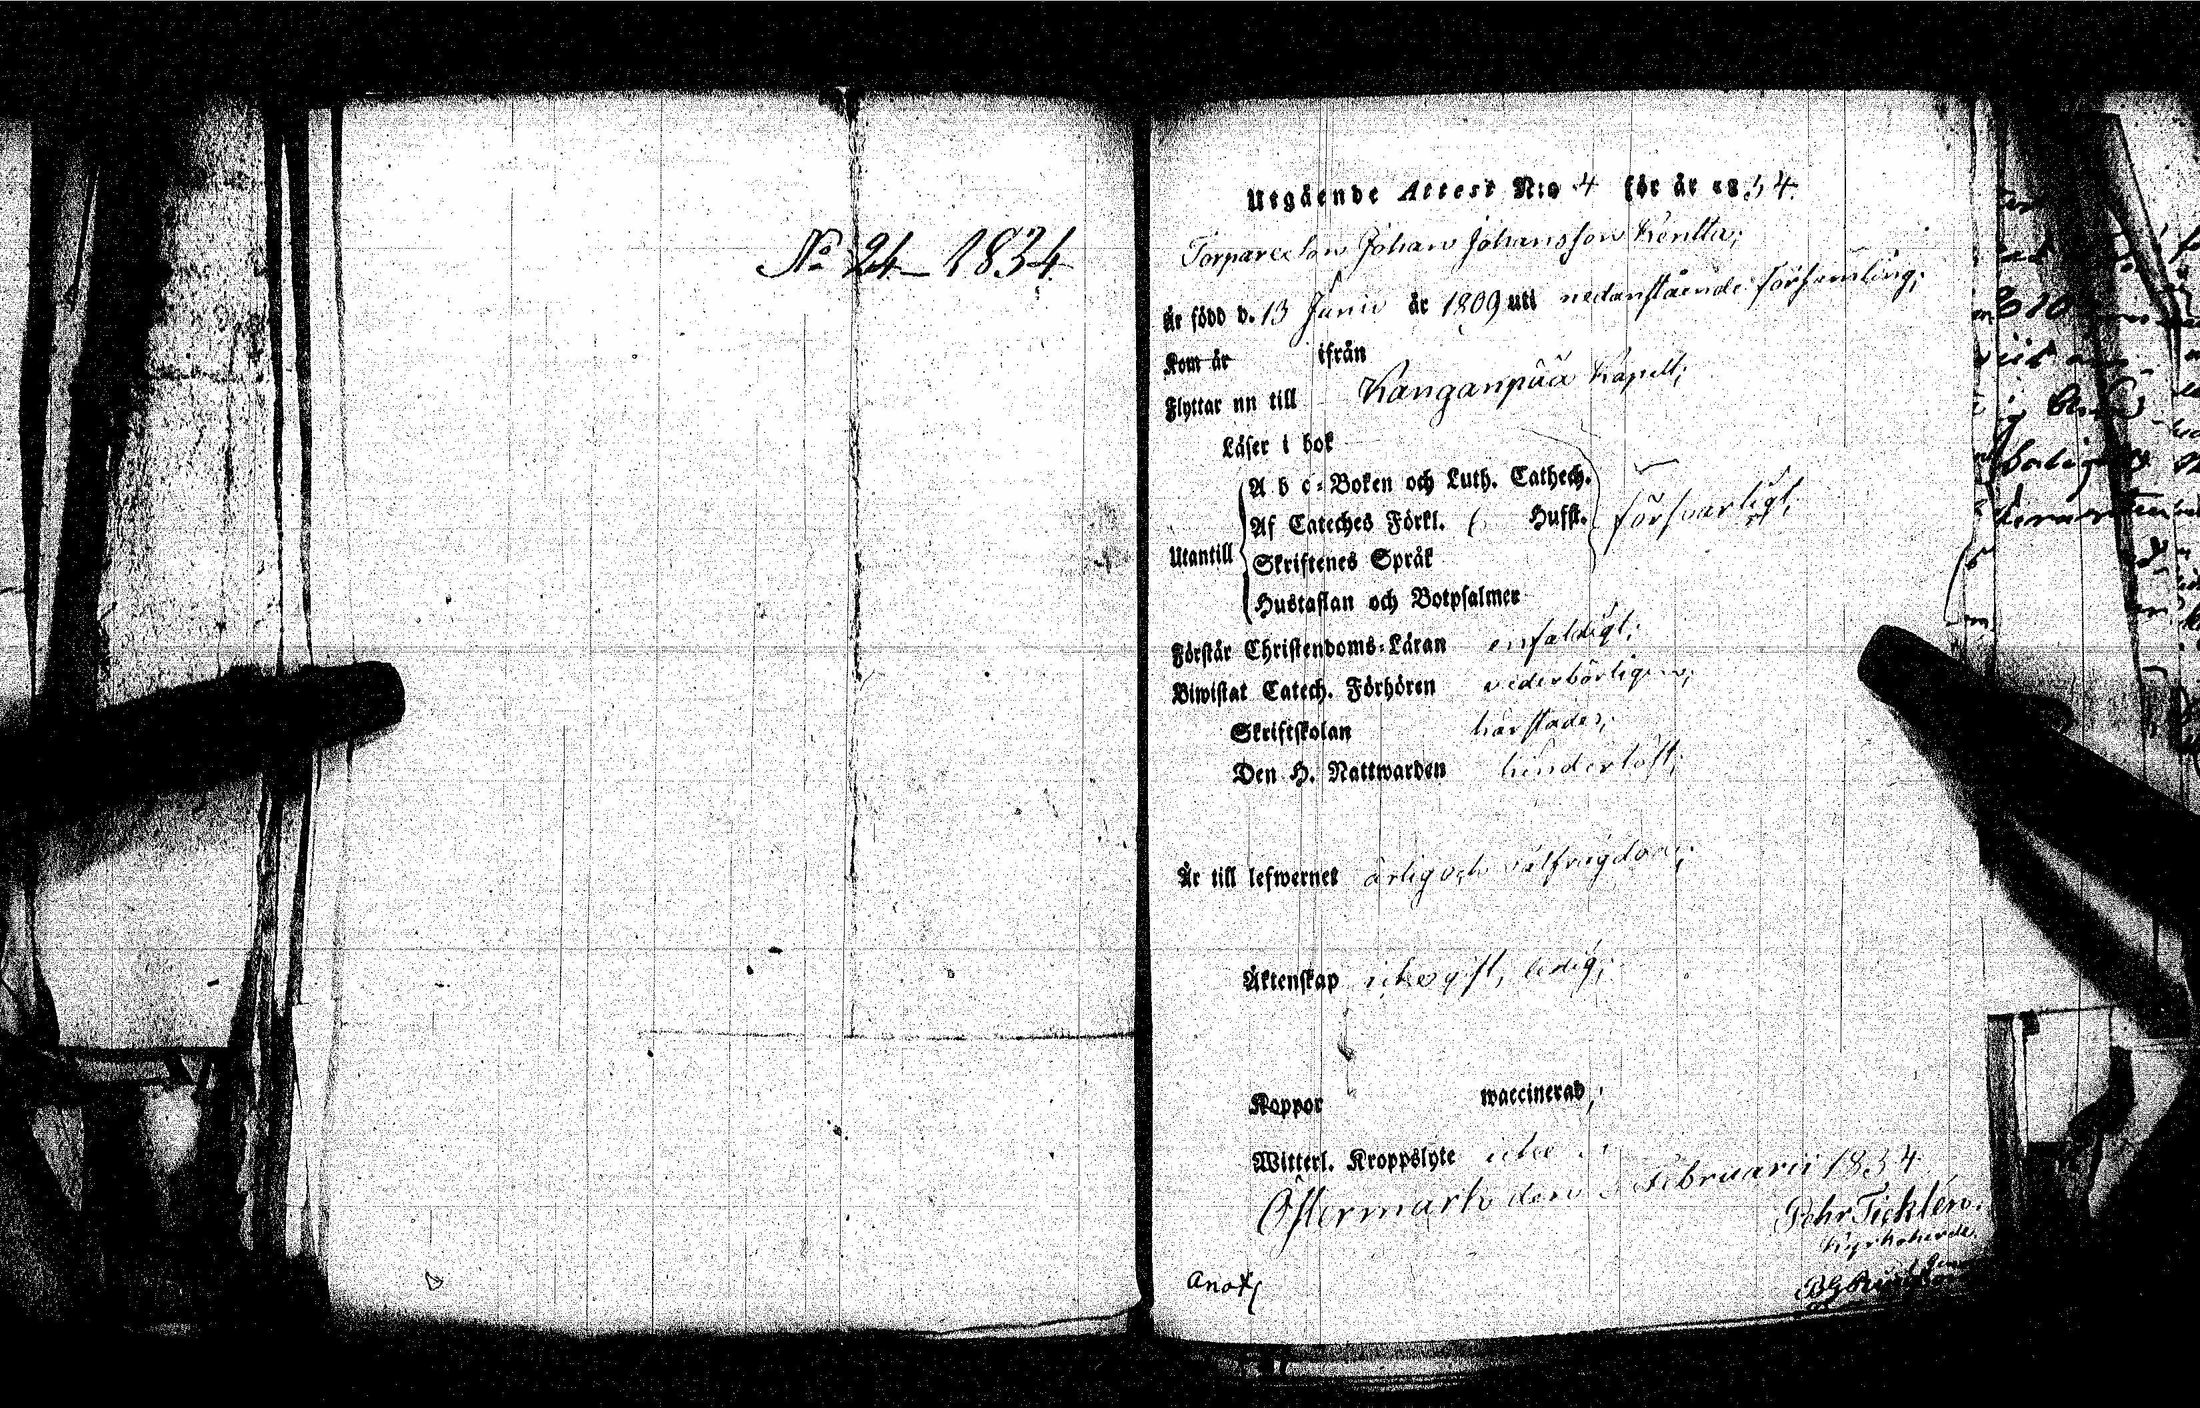 No 24 - 1834
Utgående Attest N:o 4 för år 1834.
Torpareson Johan Johansson Kentta;
Är född d. 13 Junii år 1809 uti nedanstående församling;
Kom år ifrån
Flyttar nu till Kanganpää Kapell;
Läser i bok
A b c-Boken och Luth. Cathech.
Af Cateches Förkl. Husst. försvarligt,
Utantill
Skriftenes Språk
Hustaflan och Botpsalmer
Förstår Christendoms-Läran enfaldigt;
Biwistat Catech. Förhören vederbörligen;
Skriftskolan härstädes;
Den H. Nattwarden hinderlöst;
Är till lefwernet ärlig och välfrägdad;
Äktenskap icke gift, ledig;
Koppor waccinerad;
Witterl. Kroppslyte icke
Östermark den Februarii 1834.
Pehr Ticklén.
Kyrkoherde.